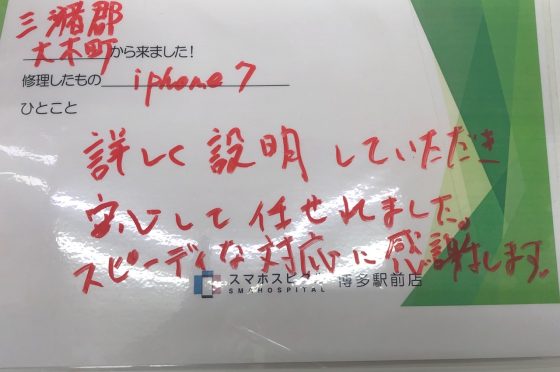 三潴郡
大木町から来ました！
修理したもの iphone 7
ひとこと
詳しく説明していただき
安心して任せれました。
スピーディな対応に感謝します。
スマホスピタル 博多駅前店
SMAHOSPITAL